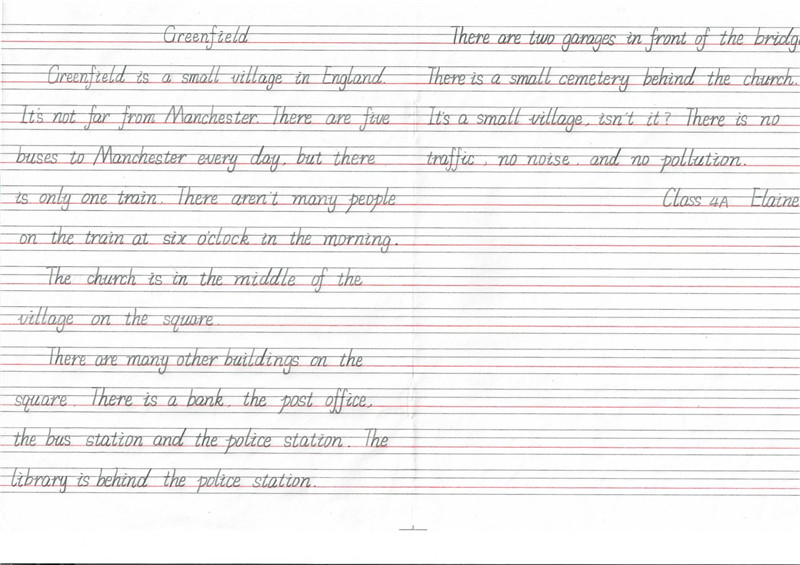 Greenfield
Greenfield is a small village in England.
It's not far from Manchester. There are five
buses to Manchester every day, but there
is only one train. There aren't many people
on the train at six o'clock in the morning.
The church is in the middle of the
village on the square.
There are many other buildings on the
square. There is a bank, the post office,
the bus station and the police station. The
library is behind the police station.
There are two garages in front of the bridg
There is a small cemetery behind the church.
It's a small village, isn't it? There is no
traffic, no noise, and no pollution.
Class 4A Elaine